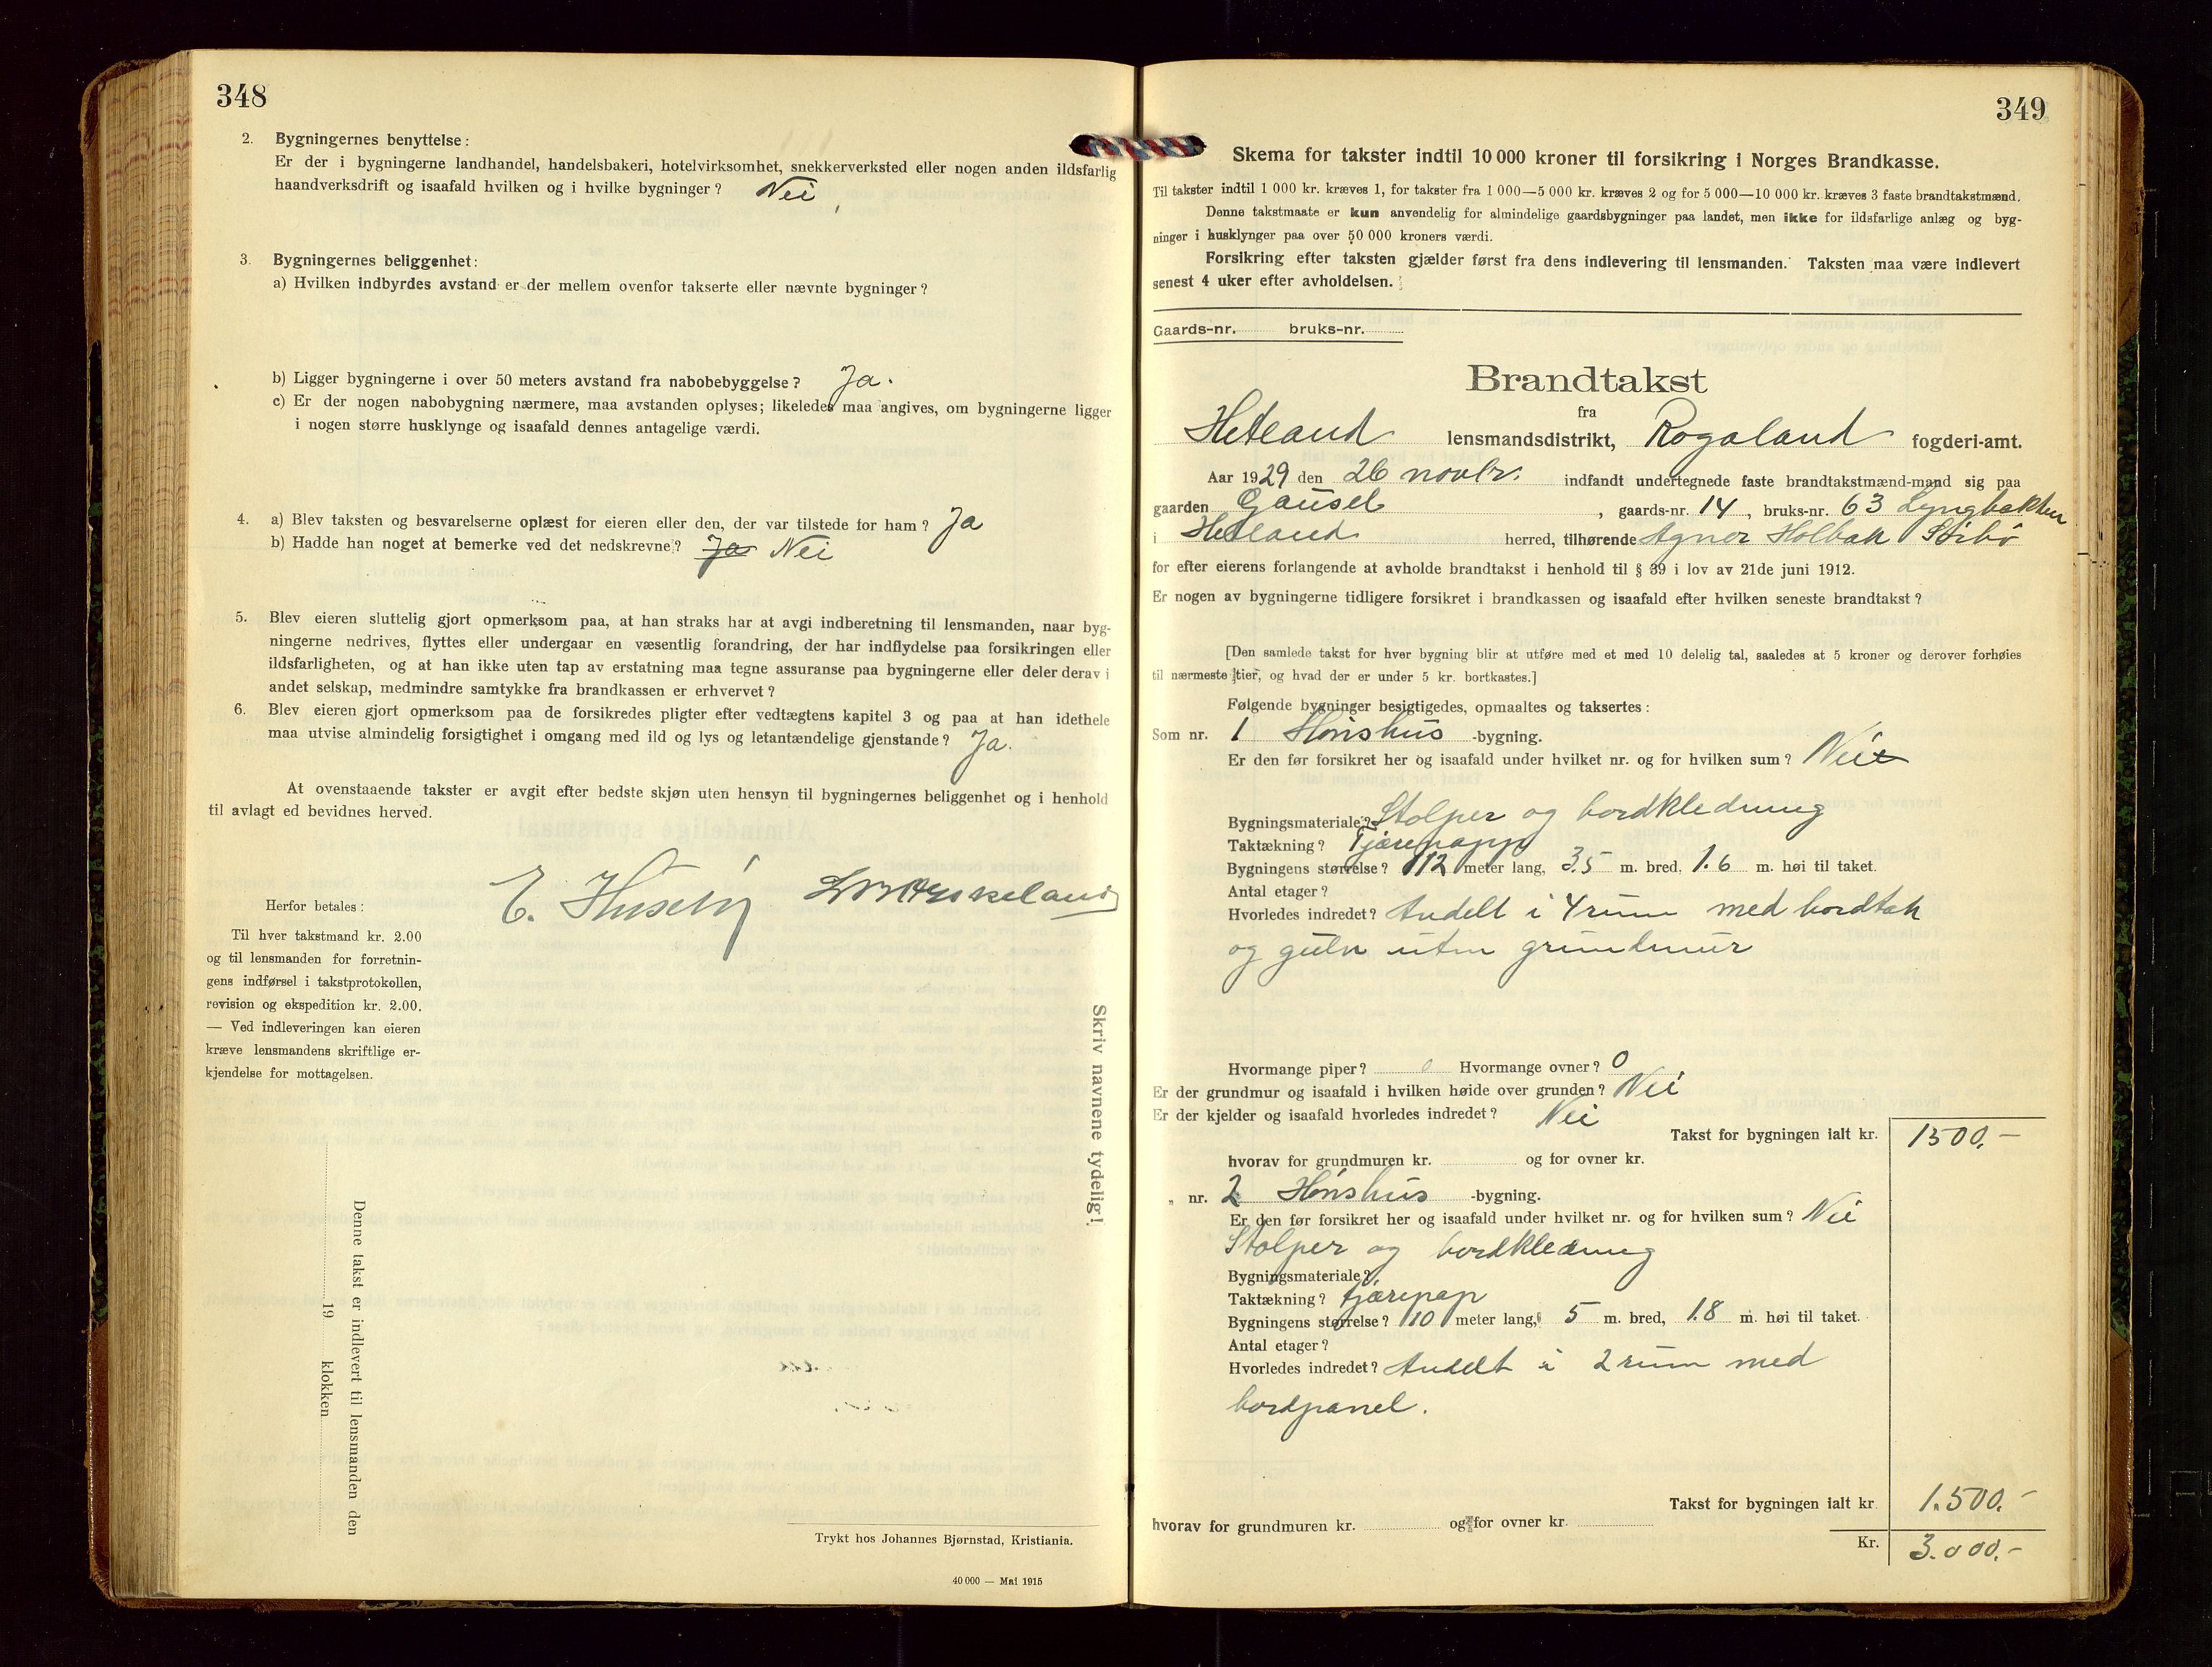 348
2. Bygningernes benyttelse:
Er der i bygningerne landhandel, handelsbakeri, hotelvirksomhet, snekkerverksted eller nogen anden ildsfarlig
haandverksdrift og isaafald hvilken og i hvilke bygninger? Nei
3. Bygningernes beliggenhet:
a) Hvilken indbyrdes avstand er der mellem ovenfor takserte eller nævnte bygninger?
b) Ligger bygningerne i over 50 meters avstand fra nabobebyggelse? Ja.
c) Er der nogen nabobygning nærmere, maa avstanden oplyses; likeledes maa angives, om bygningerne ligger
i nogen større husklynge og isaafald dennes antagelige værdi.
4. a) Blev taksten og besvarelserne oplæst for eieren eller den, der var tilstede for ham? Ja
b) Hadde han noget at bemerke ved det nedskrevne? Ja Nei
5. Blev eieren sluttelig gjort opmerksom paa, at han straks har at avgi indberetning til lensmanden, naar byg-
ningerne nedrives, flyttes eller undergaar en væsentlig forandring, der har indflydelse paa forsikringen eller
ildsfarligheten, og at han ikke uten tap av erstatning maa tegne assuranse paa bygningerne eller deler derav i
andet selskap, medmindre samtykke fra brandkassen er erhvervet?
6. Blev eieren gjort opmerksom paa de forsikredes pligter efter vedtægtens kapitel 3 og paa at han idethele
maa utvise almindelig forsigtighet i omgang med ild og lys og letantændelige gjenstande? Ja.
At ovenstaaende takster er avgit efter bedste skjøn uten hensyn til bygningernes beliggenhet og i henhold
til avlagt ed bevidnes herved.
E. Huseby
Herfor betales:
Til hver takstmand kr. 2.00
og til lensmanden for forretnin-
gens indførsel i takstprotokollen,
revision og ekspedition kr. 2.00.
— Ved indleveringen kan eieren
kræve lensmandens skriftlige er-
kjendelse for mottagelsen.
Skriv navnene tydelig!
Denne takst er indlevert til lensmanden den
19 klokken
Trykt hos Johannes Bjørnstad, Kristiania.
40 000 — Mai 1915
349
Skema for takster indtil 10 000 kroner til forsikring i Norges Brandkasse.
Til takster indtil 1 000 kr. kræves 1, for takster fra 1 000—5 000 kr. kræves 2 og for 5 000—10 000 kr. kræves 3 faste brandtakstmænd.
Denne takstmaate er kun anvendelig for almindelige gaardsbygninger paa landet, men ikke for ildsfarlige anlæg og byg-
ninger i husklynger paa over 50 000 kroners værdi.
Forsikring efter taksten gjælder først fra dens indlevering til lensmanden. Taksten maa være indlevert
senest 4 uker efter avholdelsen.
Gaards-nr. bruks-nr.
Brandtakst
fra
Hetland lensmandsdistrikt, Rogaland fogderi-amt.
Aar 1929 den 26 novbr. indfandt undertegnede faste brandtakstmænd-mand sig paa
gaarden Gausel, gaards-nr. 14, bruks-nr. 63
i Hetland herred, tilhørende Agner Holbak
for efter eierens forlangende at avholde brandtakst i henhold til § 39 i lov av 21de juni 1912.
Er nogen av bygningerne tidligere forsikret i brandkassen og isaafald efter hvilken seneste brandtakst?
[Den samlede takst for hver bygning blir at utføre med et med 10 delelig tal, saaledes at 5 kroner og derover forhøies
til nærmeste tier, og hvad der er under 5 kr. bortkastes.]
Følgende bygninger besigtigedes, opmaaltes og taksertes:
Som nr. 1 Hønshus -bygning.
Er den før forsikret her og isaafald under hvilket nr. og for hvilken sum? Nei
Bygningsmateriale? Stolper og bordkledning
Taktækning? Tjærepapp
Bygningens størrelse? 12 meter lang, 3.5 m. bred, 1.6 m. høi til taket.
Antal etager?
Hvorledes indredet? Indelt i 4 rum med bordtak
og gulv uten grundmur
Hvormange piper? 0 Hvormange ovner? 0
Er der grundmur og isaafald i hvilken høide over grunden? Nei
Er der kjelder og isaafald hvorledes indredet? Nei
Takst for bygningen ialt kr. 1500.-
hvorav for grundmuren kr. og for ovner kr.
„ nr. 2 Hønshus -bygning.
Er den før forsikret her og isaafald under hvilket nr. og for hvilken sum? Nei
Stolper og bordkledning
Bygningsmateriale?
Taktækning? Tjærepap
Bygningens størrelse? 10 meter lang, 5 m. bred, 1.8 m. høi til taket.
Antal etager?
Hvorledes indredet? Indelt i 2 rum med
bordpanel.
Takst for bygningen ialt kr 1.500.-
hvorav for grundmuren kr. og for ovner kr.
Kr. 3.000.-